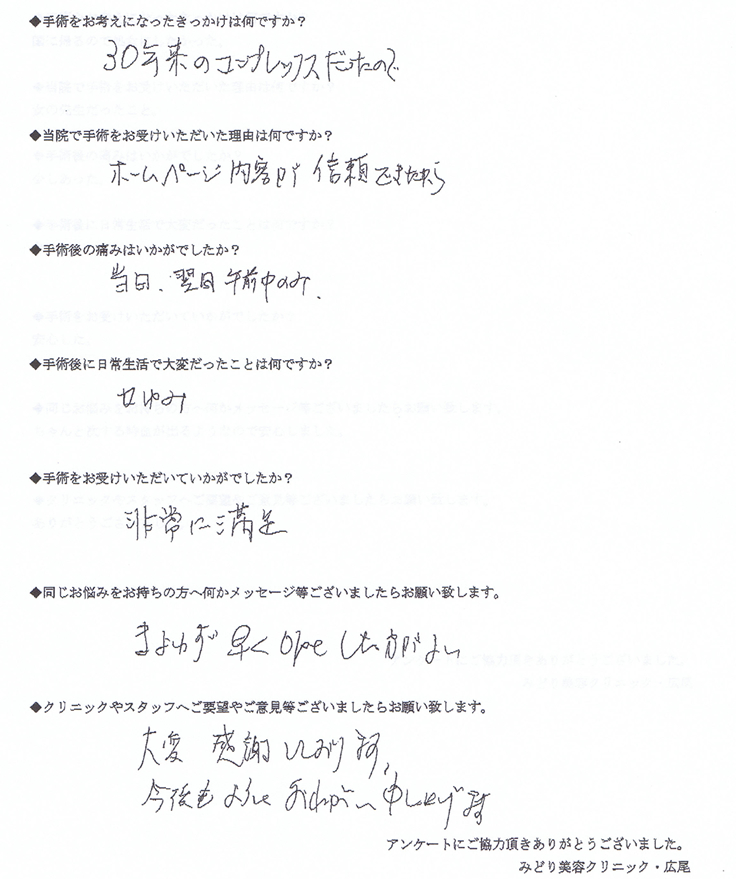 ◆手術をお考えになったきっかけは何ですか？
30年来のコンプレックスだったので
◆当院で手術をお受けいただいた理由は何ですか？
ホームページ内容が信頼できたから
◆手術後の痛みはいかがでしたか？
当日、翌日午前中のみ、
◆手術後に日常生活で大変だったことは何ですか？
かゆみ
◆手術をお受けいただいていかがでしたか？
非常に満足
◆同じお悩みをお持ちの方へ何かメッセージ等ございましたらお願い致します。
まよわず早くOpeした方がよい
◆クリニックやスタッフへご要望やご意見等ございましたらお願い致します。
大変 感謝しております、
今後もよろしくおねがい申し上げます
アンケートにご協力頂きありがとうございました。
みどり美容クリニック・広尾